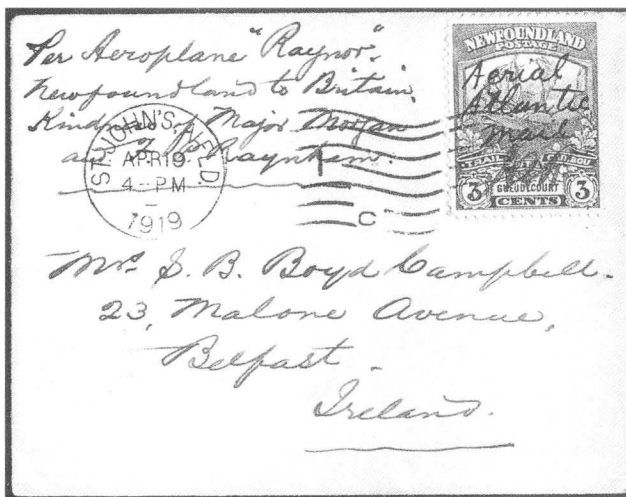 Per Aeroplane "Raynor".
Newfoundland to Britain.
Kindness of Major Morgan
and J. P. Raynham.
ST. JOHN'S, NFLD.
APR 19
4-PM
1919
C
NEWFOUNDLAND
POSTAGE
Aerial
Atlantic
Mail
TRAIL OF THE CARIBOU
GUEUDECOURT
3 CENTS 3
Mrs. S. B. Boyd Campbell.
23, Malone Avenue,
Belfast.
Ireland.